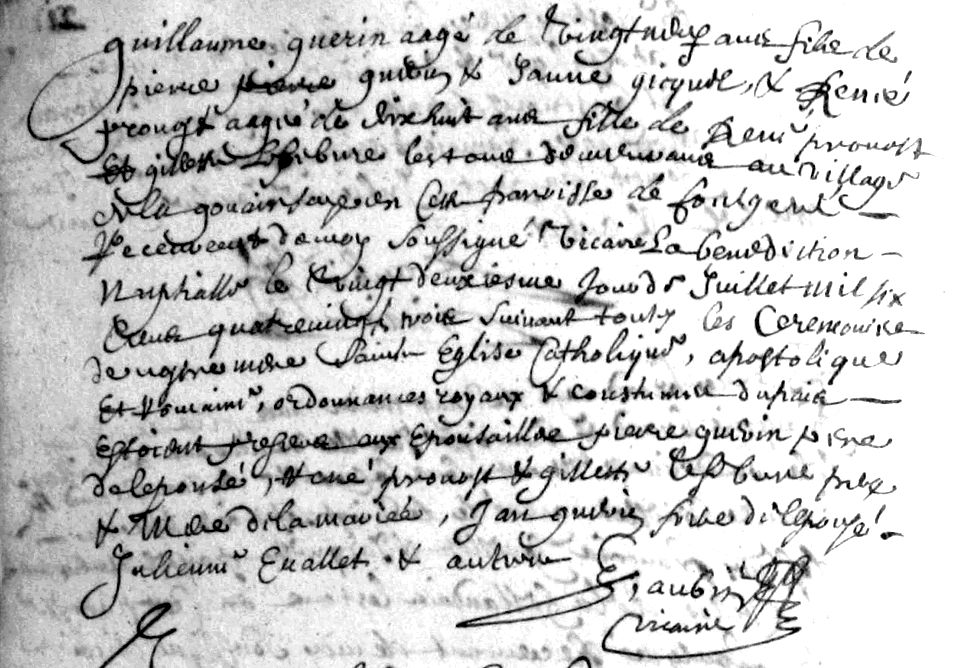 guillaume guerin aagé de vingt deux ans filx de
pierre pierre guerin & Janne gicquel, & Renée
prouost aagée de dixhuit ans fille de René prouost
Et gillette Lefebure les tous demeurans au village
de la en ceste parroisse de fougeré
Receurent de moy soussigné vicaire La benediction
Nuptialle le vingt deuxiesme Jour de Juillet mil six
cens quatre vingts trois suiuant touts les Ceremonies
de nostre mere Sainte Eglise Catholique, apostolique
Et Romaine, ordonnances royaux & coustumes du pais
Estoient presens aux Epousailles pierre guerin pere
de lepousé, René prouost & gillette Lefebure pere
& Mere de la mariée, Jan guerin frere de lepousé.
Julienne Euallet & autres
aubin
vicaire